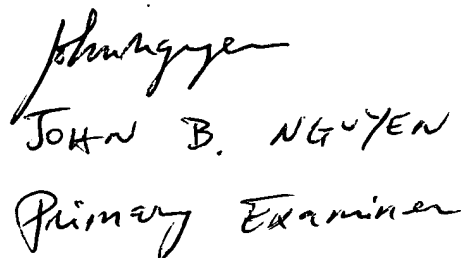 John Nguyen
JOHN B. NGUYEN
Primary Examiner